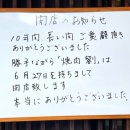 閉店のお知らせ
10年間 長い間 ご愛顧頂き
ありがとうございました
勝手ながら「焼肉 劉」は
6月27日を持ちまして
閉店致します
本当に ありがとうございました。